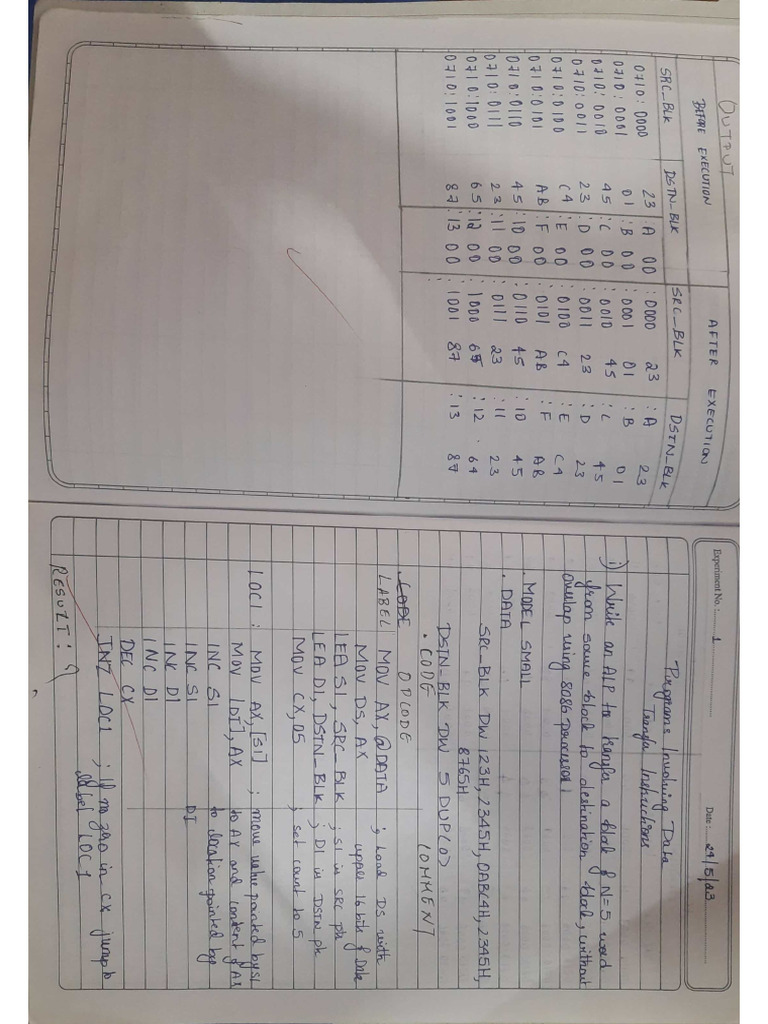 OUTPUT
BEFORE EXECUTION AFTER EXECUTION
SRC_BLK DSTN_BLK SRC_BLK DSTN_BLK
0710:0000 23 :A 00 :0000 23 :A 23
0710:0001 01 :B 00 :0001 01 :B 01
0710:0010 45 :C 00 :0010 45 :C 45
0710:0011 23 :D 00 :0011 23 :D 23
0710:0100 C4 :E 00 :0100 C4 :E C4
0710:0101 AB :F 00 :0101 AB :F AB
0710:0110 45 :10 00 :0110 45 :10 45
0710:0111 23 :11 00 :0111 23 :11 23
0710:1000 65 :12 00 :1000 65 :12 64
0710:1001 87 :13 00 :1001 87 :13 87
Experiment No.: 1 Date: 24/5/23
Programs Involving Data
Transfer Instructions
i) Write an ALP to transfer a block of N=5 word
from source block to destination block, without
overlap using 8086 processor.
.MODEL SMALL
.DATA
SRC_BLK DW 123H, 2345H, 0ABC4H, 2345H,
8765H
DSTN_BLK DW 5 DUP(0)
.CODE
.CODE OPCODE COMMENT
LABEL MOV AX, @DATA ; Load DS with
MOV DS, AX upper 16 bits of Data
LEA SI, SRC_BLK ; SI in SRC ptr
LEA DI, DSTN_BLK ; DI in DSTN ptr
MOV CX, 05 ; set count to 5
LOC1: MOV AX, [SI] ; move value pointed by SI
MOV [DI], AX to AX and content of AX
INC SI to location pointed by
INC SI DI
INC DI
INC DI
DEC CX
JNZ LOC1 ; If no zero in CX jump to
label LOC1
RESULT: